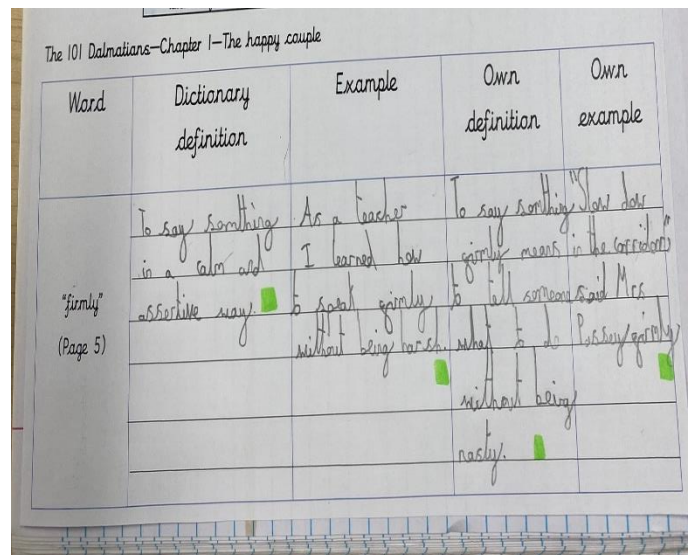 The 101 Dalmatians—Chapter 1—The happy couple
Word
Dictionary
definition
Example
Own
definition
Own
example
"firmly"
(Page 5)
To say somthing
in a calm and
assertive way.
As a teacher
I learned how
to speak firmly
without being harsh.
To say somthing
firmly means
to tell someone
what to do
without being
nasty.
"Slow dow
in the corridors"
said Mrs
firmly